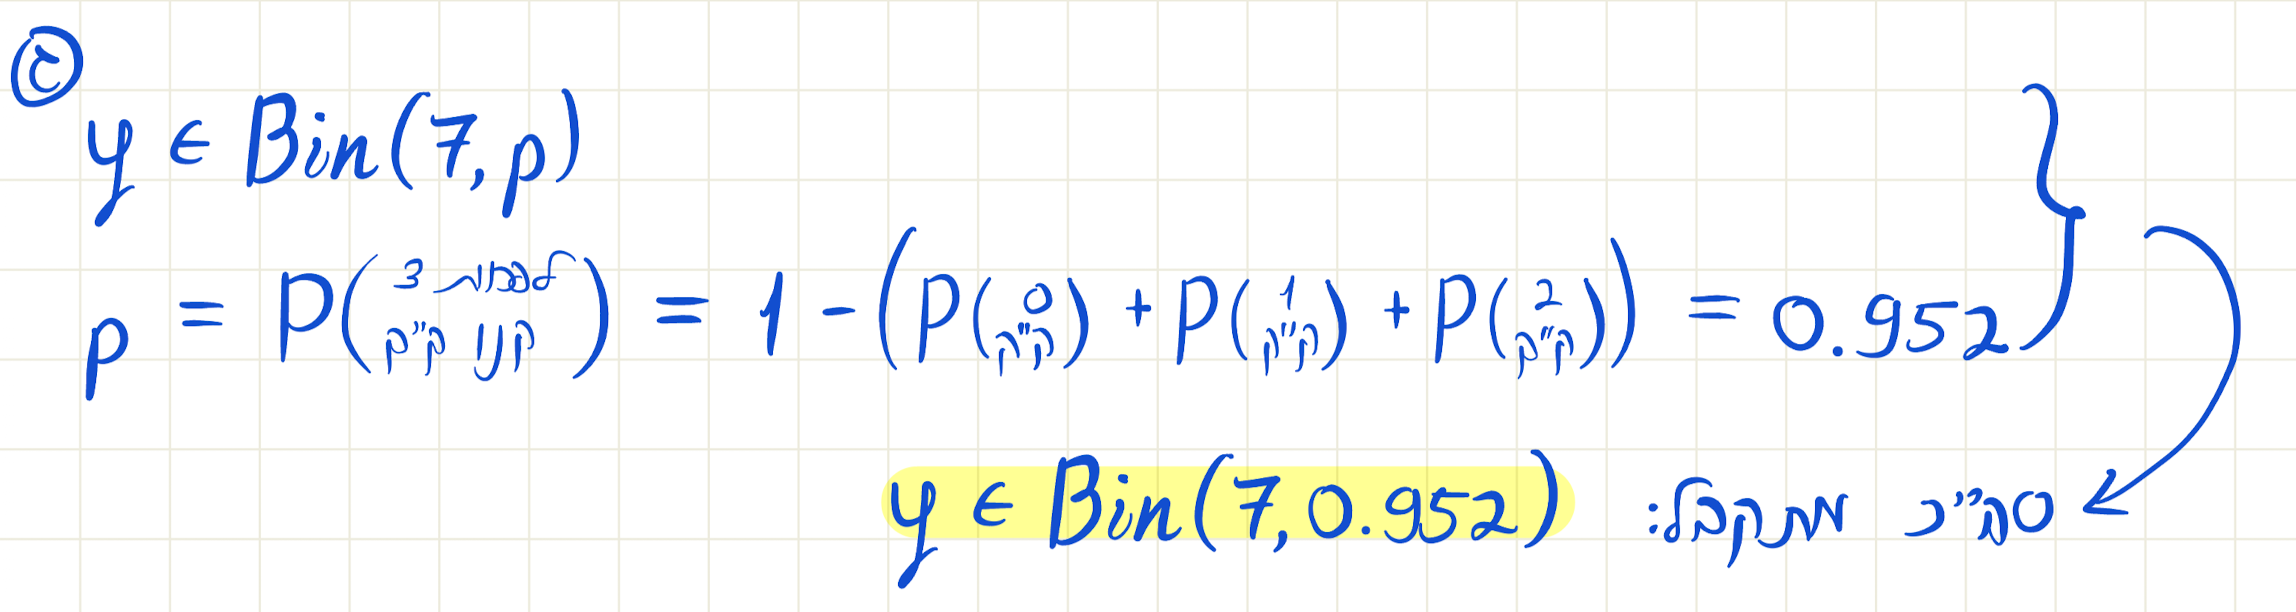 ג
y ∈ Bin(7, p)
p = P(לפחות 3 קנו ק"ק) = 1 - (P(0 ק"ק) + P(1 ק"ק) + P(2 ק"ק)) = 0.952
סה"כ מתקבל: y ∈ Bin(7, 0.952)